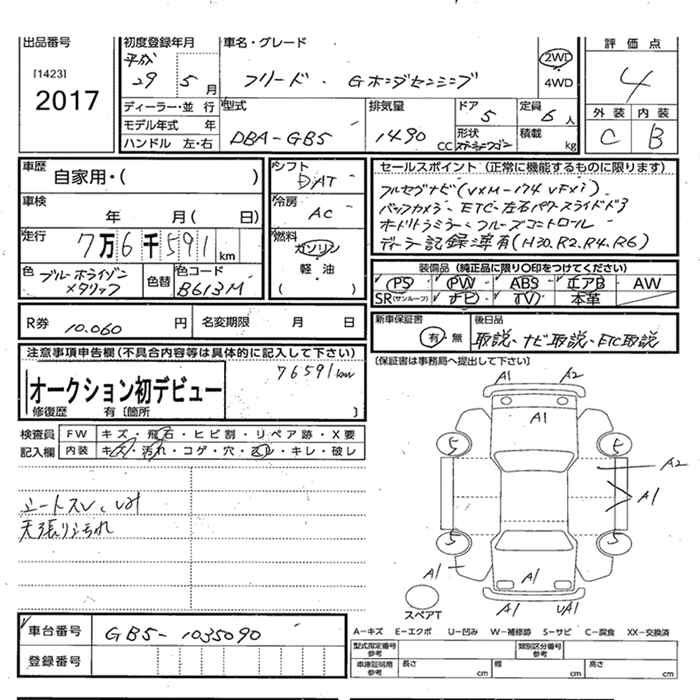 出品番号
[1423]
2017
初度登録年月
平成
29 5 月
車名・グレード
フリード . Gホンダセンシング
2WD
4WD
評価点
4
ディーラー・並 行
モデル年式 年
ハンドル 左・右
型式
DBA-GB5
排気量
1490 CC
ドア
5
形状
定員
6 人
積載
kg
外装 内装
C B
車歴
自家用・( )
車検
年 月( 日)
走行
7万6千591km
色
ブルーホライゾン
メタリック
色替
色コード
B613M
シフト
DAT
冷房
AC
燃料
ガソリン
軽・油
( )
セールスポイント (正常に機能するものに限ります)
フルセグナビ(VXM-174VFXi).
バックカメラ、ETC・左右パワースライドドア
オートリトラミラー、クルーズコントロール
ディーラー記録簿有(H30.R2.R4.R6)
装備品 (純正品に限り〇印をつけてください)
PS PW ABS エアB AW
SR(サンルーフ) ナビ TV 本革
R券 10.060 円
名変期限 月 日
新車保証書
有・無
後日品
取説、ナビ取説、ETC取説
(保証書は事務局へ提出して下さい)
注意事項申告欄(不具合内容等は具体的に記入して下さい)
76591km
オークション初デビュー
修復歴 有〔箇所 〕
検査員
記入欄
FW キズ・飛石・ヒビ割・リペア跡・X要
内装 キズ・汚れ・コゲ・穴・スレ・キレ・破レ
天張りよごれ
A1 A2
A1
5 5
A2
A1
5 5
A1
A1
A1 UA1
スペアT
車台番号 GB5-1035090
登録番号
A-キズ E-エクボ U-凹み W-補修跡 S-サビ C-腐食 XX-交換済
型式指定番号
参考
類別区分番号
参考
車庫証明用
参考
長さ cm
幅 cm
高さ cm